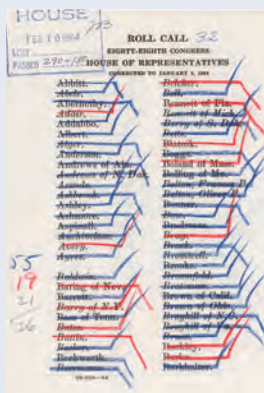 HOUSE
FEB 10 1964
PASSED 290-130
ROLL CALL 32
EIGHTY-EIGHTH CONGRESS
HOUSE OF REPRESENTATIVES
CORRECTED TO JANUARY 3, 1964
Abbitt.
Abele.
Abernethy.
Adair.
Addabbo.
Albert.
Alger.
Anderson.
Andrews of Ala.
Andrews of N. Dak.
Arends.
Ashbrook.
Ashley.
Ashmore.
Aspinall.
Auchincloss.
Avery.
Ayres.
Baldwin.
Baring of Nev.
Barrett.
Barry of N.Y.
Bass of Tenn.
Bates.
Battin.
Becker.
Beckworth.
Beermann.
Belcher.
Bell.
Bennett of Fla.
Bennett of Mich.
Berry of S. Dak.
Betts.
Blatnik.
Boggs.
Boland of Mass.
Bolling of Mo.
Bolton, Frances P.
Bolton, Oliver P.
Bonner.
Bow.
Brademas.
Bray.
Brock.
Bromwell.
Brooks.
Broomfield.
Brotzman.
Brown of Calif.
Brown of Ohio.
Broyhill of N.C.
Broyhill of Va.
Bruce.
Buckley.
Burke.
Burkhalter.
55
19
21
26